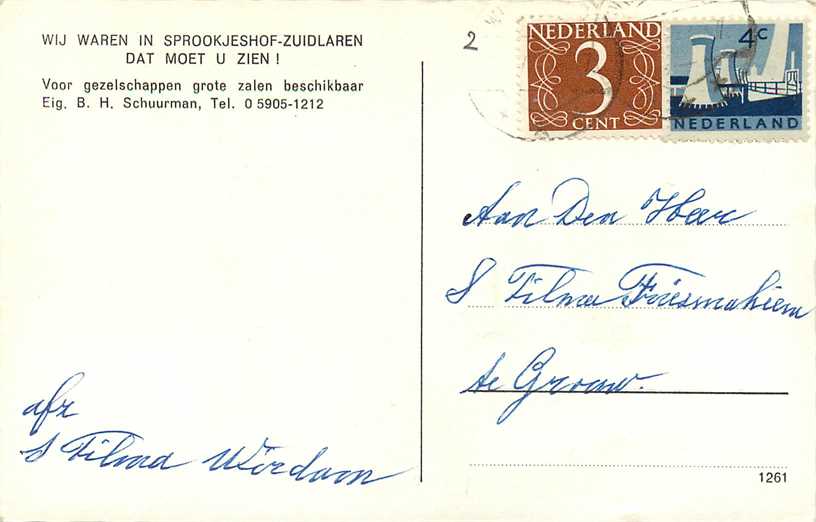 WIJ WAREN IN SPROOKJESHOF-ZUIDLAREN
DAT MOET U ZIEN !
Voor gezelschappen grote zalen beschikbaar
Eig. B. H. Schuurman, Tel. 0 5905-1212
2
NEDERLAND
3
CENT
4c
NEDERLAND
Aan Den Heer
S Tilma Friesmahiem
te Grouw.
afz
S Tilma Wirdum
1261